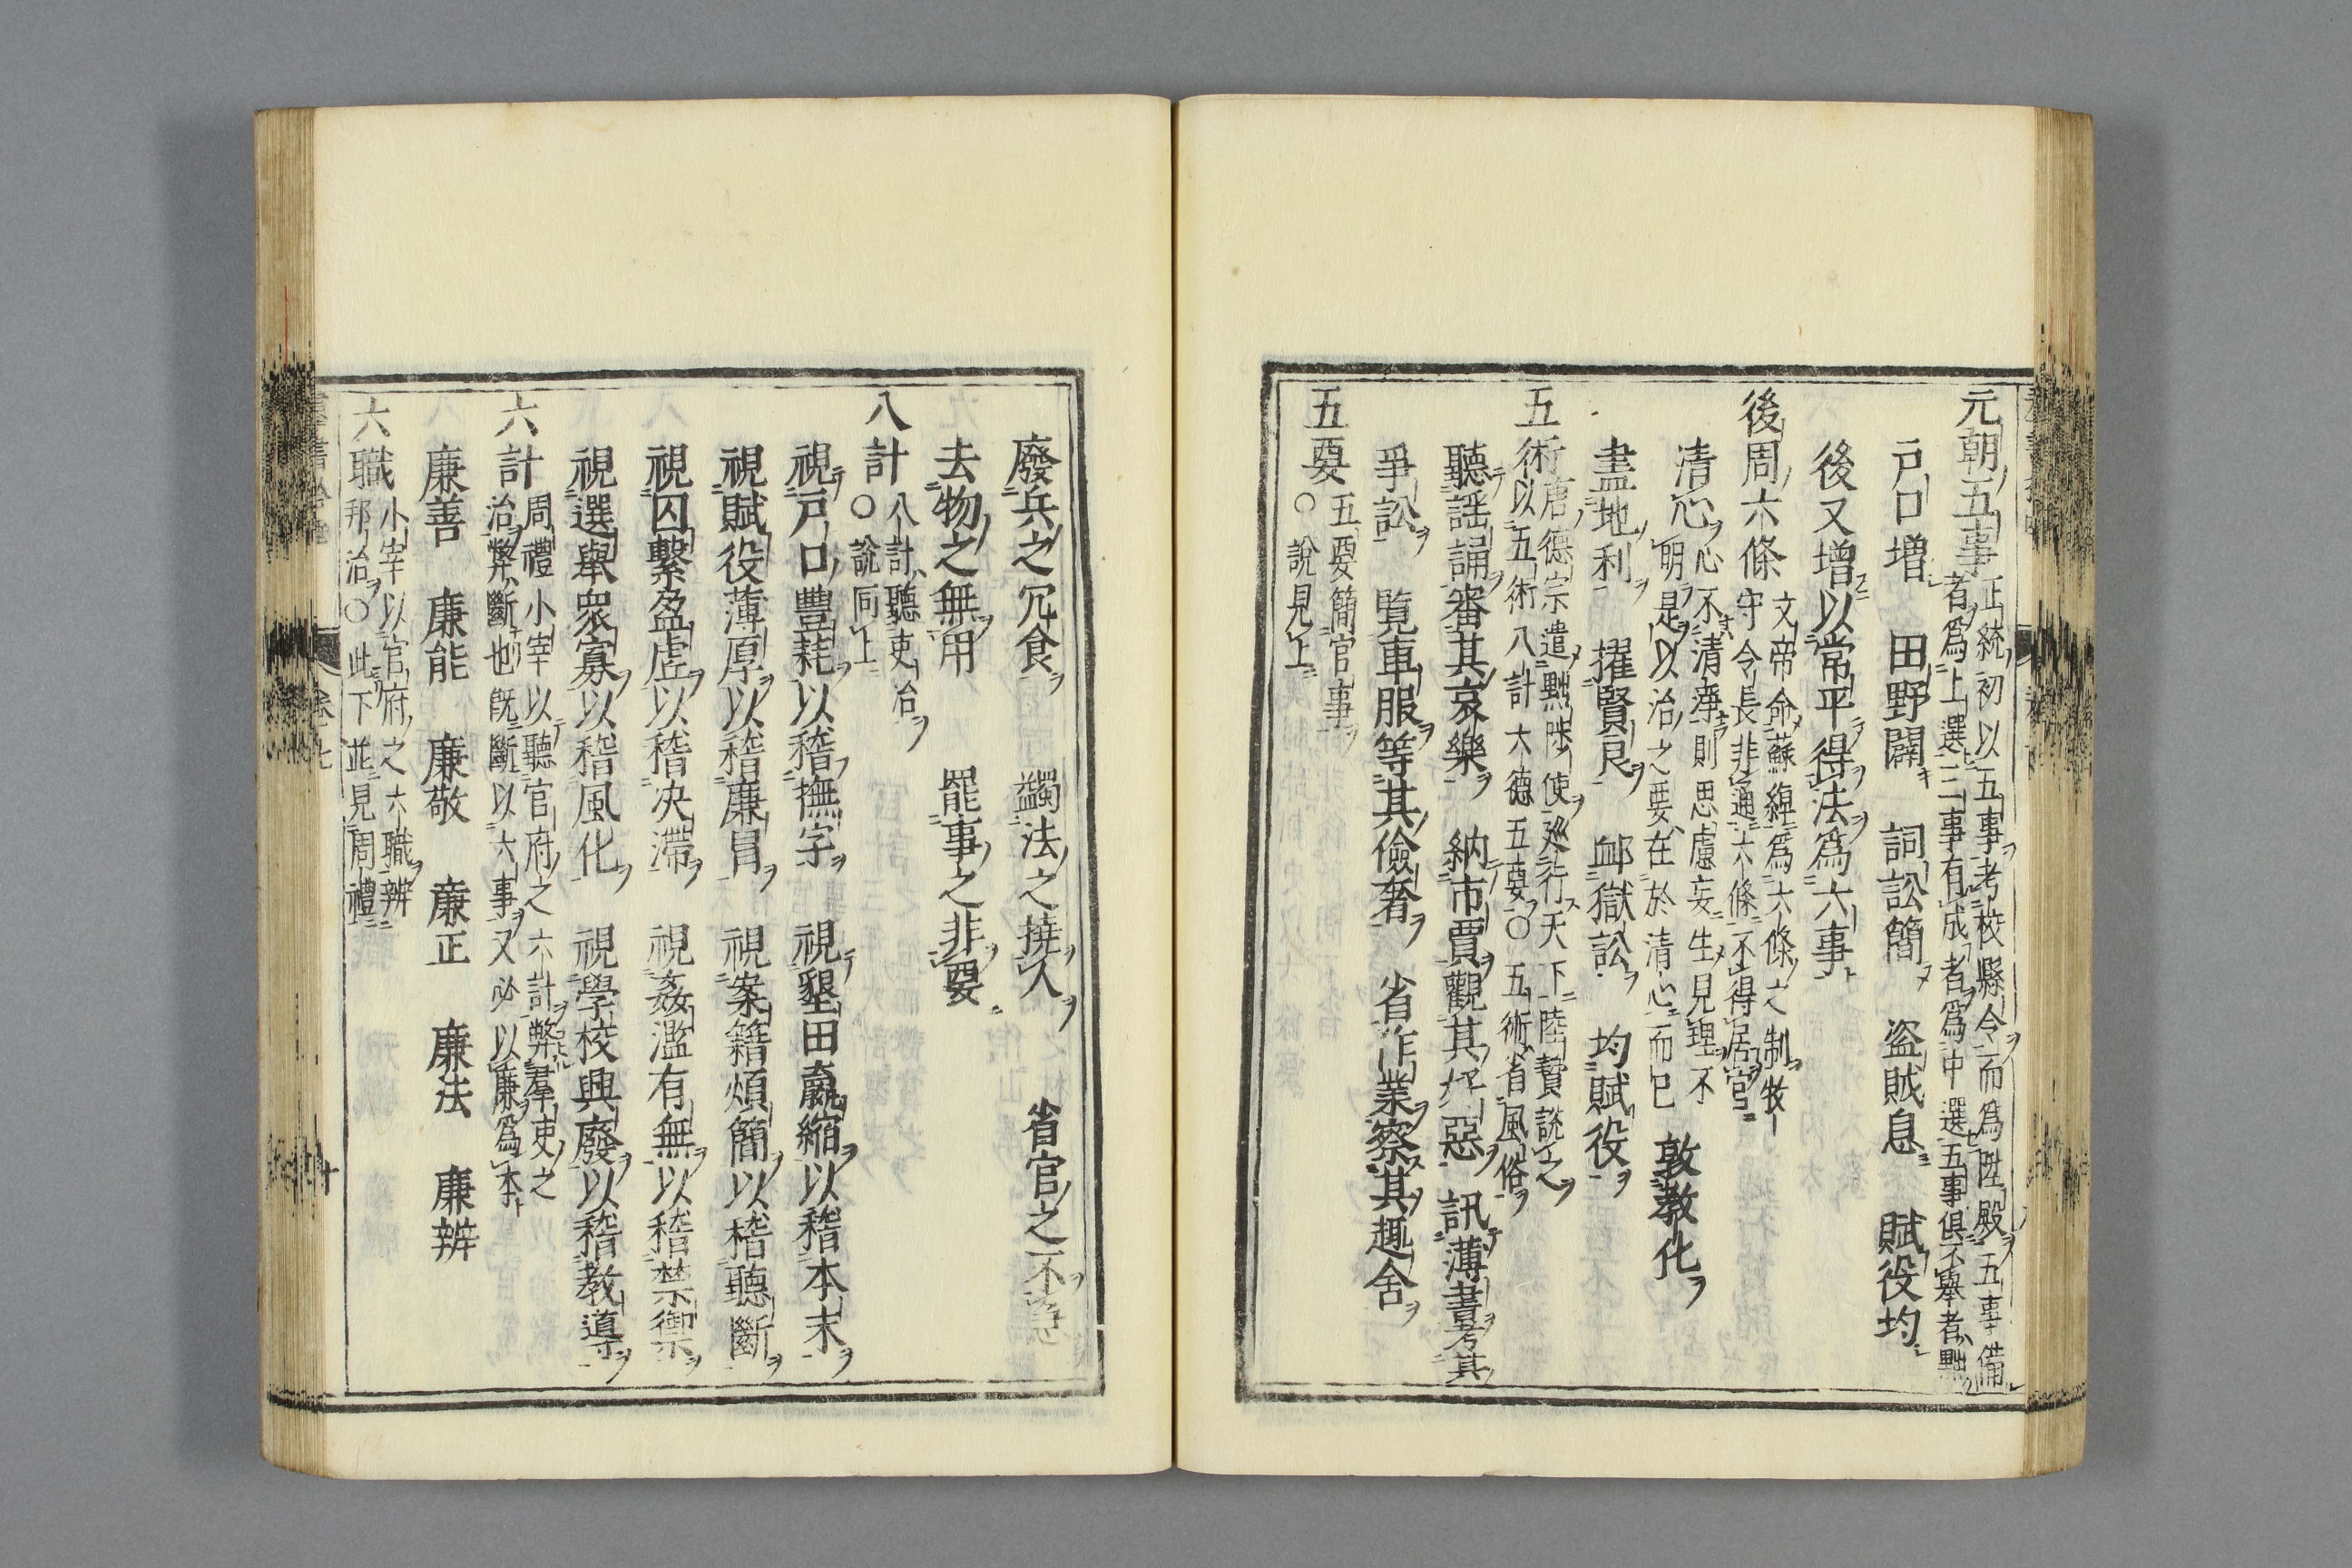 元朝五事 正統初以五事考校縣令而為陞殿五事備
者為上選三事有成者為中選五事俱不舉者黜
戸口増 田野闢 詞訟簡 盗賊息 賦役均
後又増以常平得法為六事
後周六條 文帝命蘇綽為六條之制牧
守令長非通六條不得居官
清心 心不清淨則思慮妄生見理不
明是以治之要在於清心而已 敦教化
盡地利 擢賢良 卹獄訟 均賦役
五術 唐德宗遣黜陟使廵行天下陸贄説之
以五術八計六德五要○五術省風俗
聽謡誦審其哀樂 納市賈觀其好惡 訊薄書考其
爭訟 覧車服等其儉奢 省作業察其趣舍
五要 五要簡官事
○説見上
廢兵之冗食 蠲法之撓人 省官之不急
去物之無用 罷事之非要
八計 八計聽吏治
○説同上
視戸口豐耗以稽撫字 視墾田贏縮以稽本末
視賦役薄厚以稽廉冒 視案籍煩簡以稽聽斷
視囚繫盈虚以稽决滯 視姦濫有無以稽禁禦
視選舉衆寡以稽風化 視學校興廢以稽教導
六計 周禮小宰以聽官府之六計弊羣吏之
治弊斷也既斷以六事又必以廉為本
廉善 廉能 廉敬 廉正 廉法 廉辨
六職 小宰以官府之六職辨
邦治○此下並見周禮